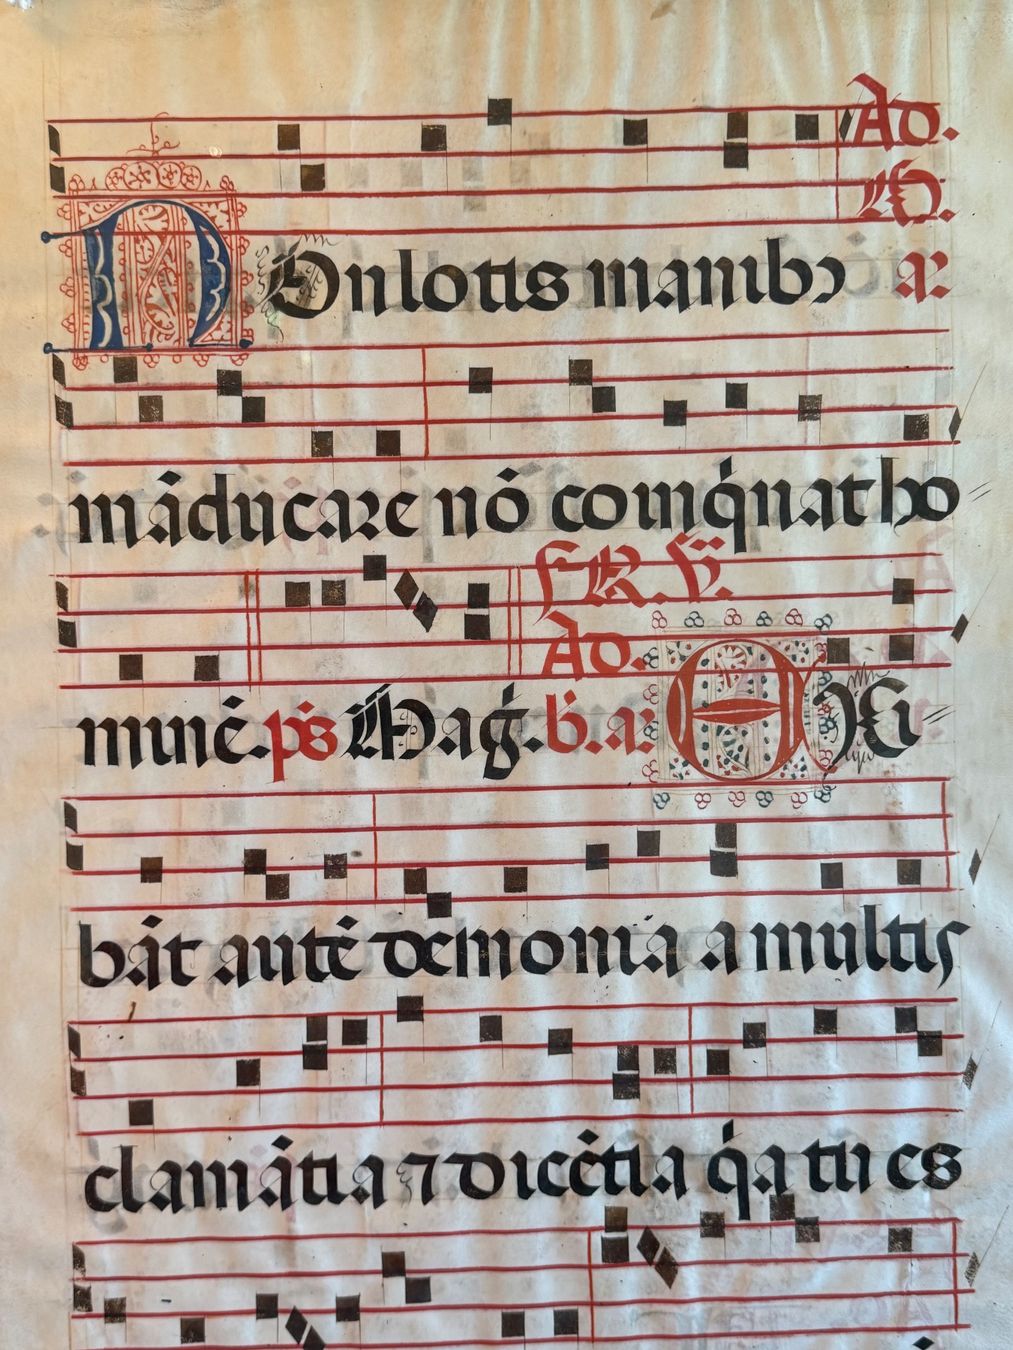 Ad.
M.
NOn lotis manibꝰ a:
mãducare nõ coinq̇nat ho
minẽ. p̃s Mag̃. b̃. a: EXEi
bãt autẽ demonia a multis
clamãtia ⁊ dicẽtia q̇a tu es